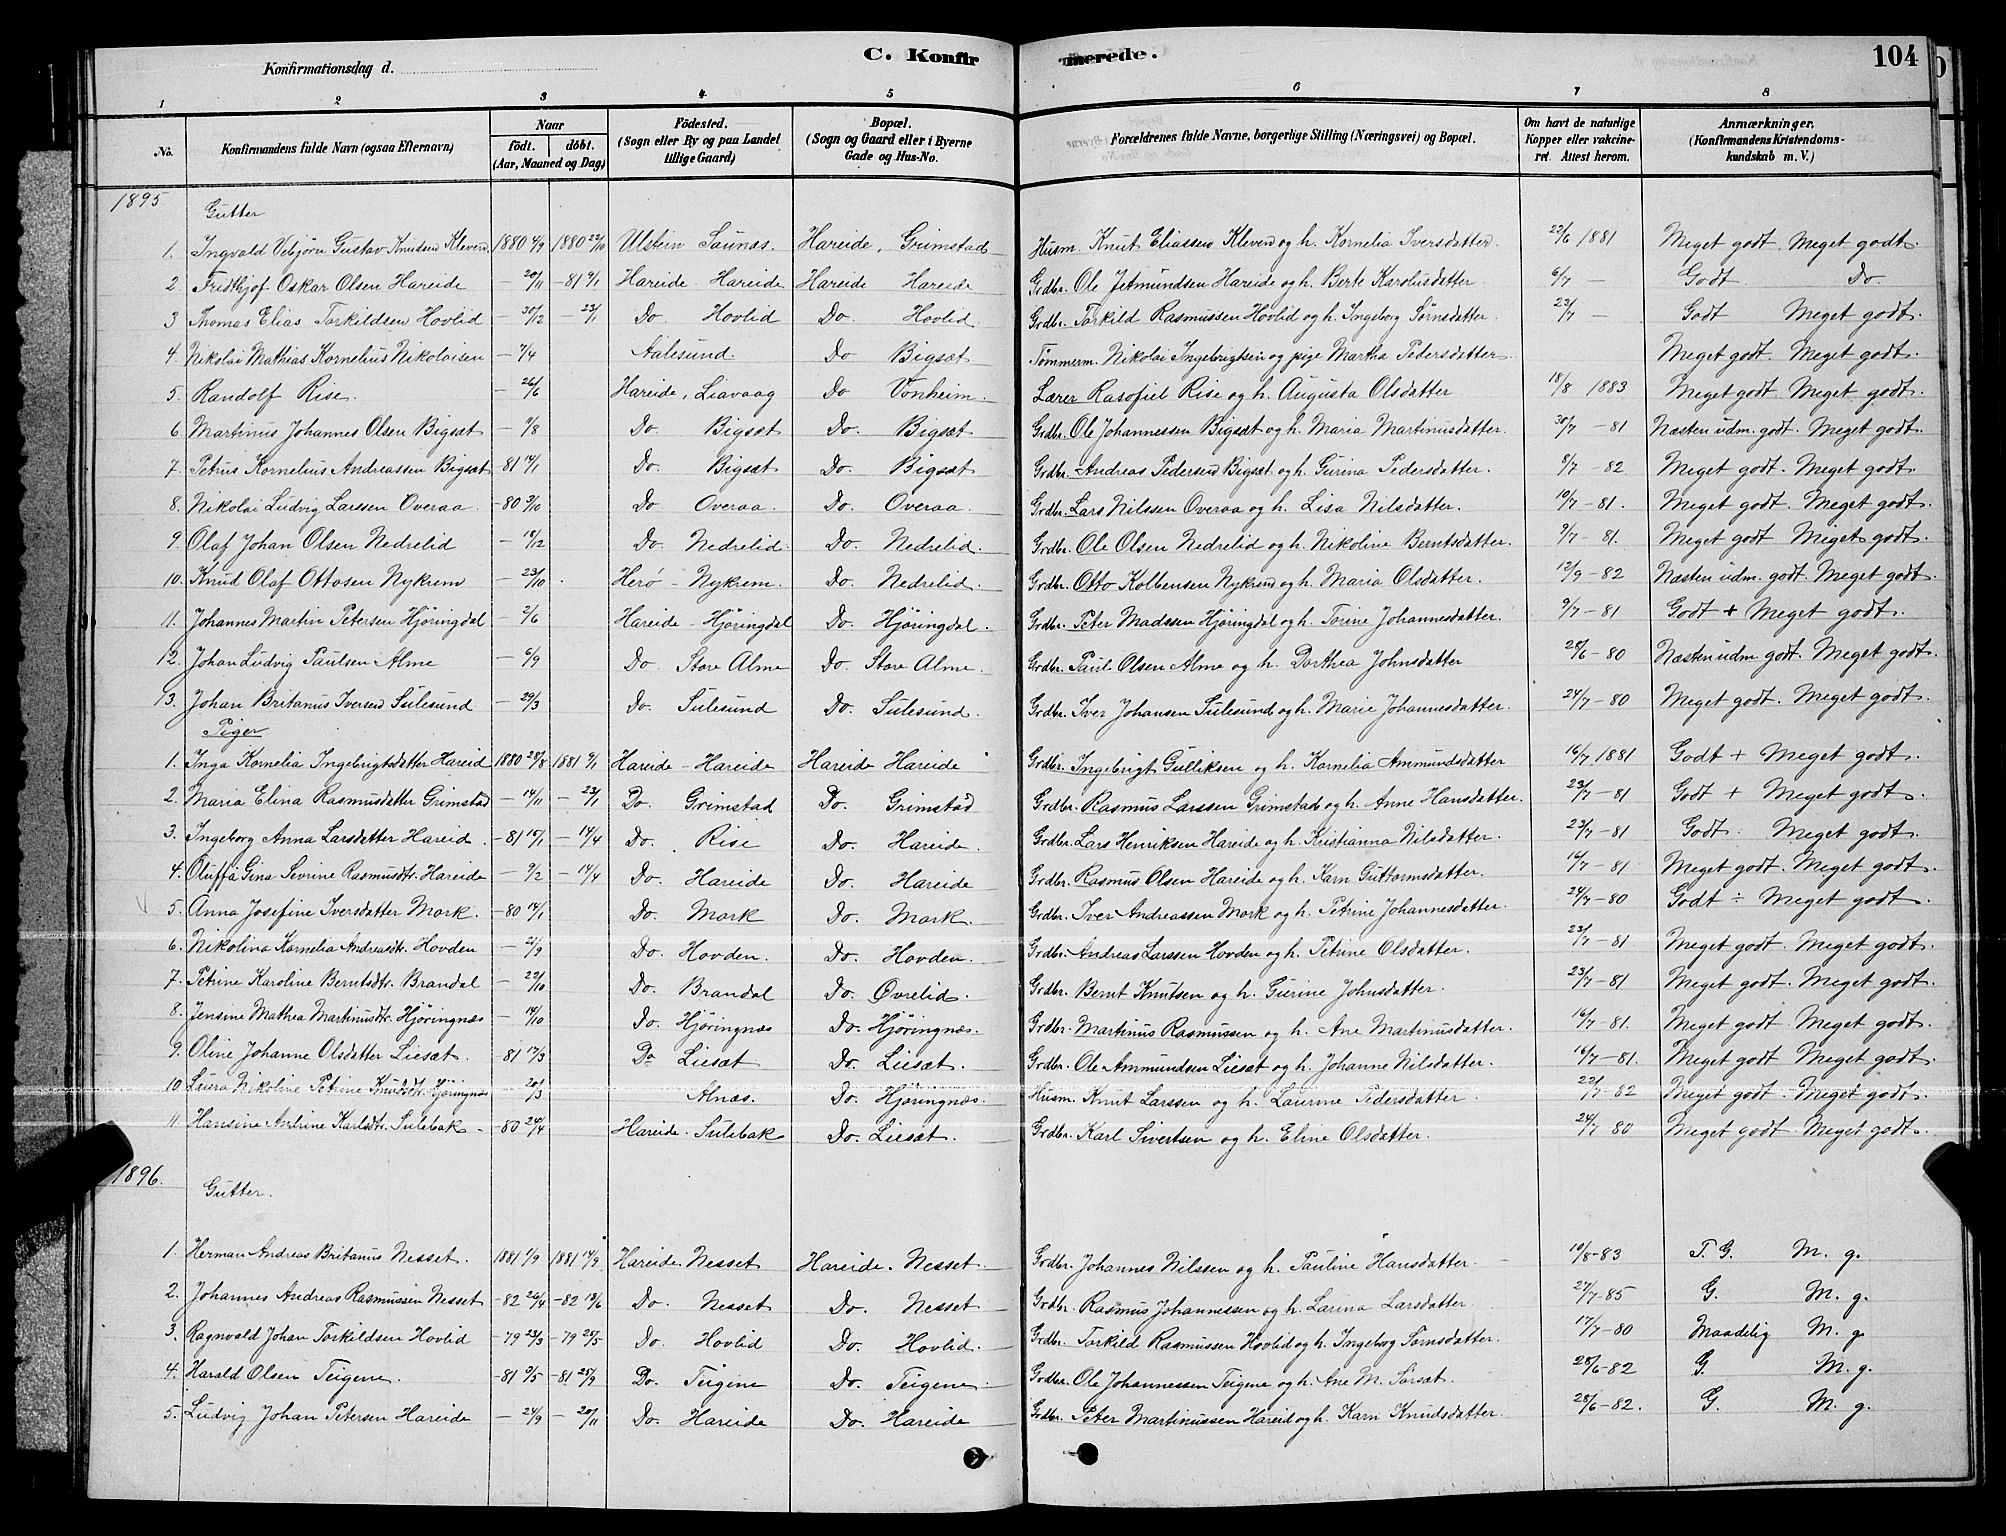 Konfirmationsdag d.
C. Konfirmerede.
104
1 2 3 4 5 6 7 8
No. Konfirmandens fulde Navn (ogsaa Efternavn) Naar födt. döbt. (Aar, Maaned og Dag) Födested. (Sogn eller By og paa Landet tillige Gaard) Bopæl. (Sogn og Gaard eller i Byerne Gade og Hus-No. Forældrenes fulde Navne, borgerlige Stilling (Næringsvei) og Bopæl. Om havt de naturlige Kopper eller vakcineret. Attest herom. Anmærkninger, (Konfirmandens Kristendomskundskab m. V.)
1895
Gutter
1. Ingvald Vebjørn Gustav Knudsen Kleven 1880 4/9 1880 22/10 Ulstein Saunæs. Hareide, Grimstad Husm. Knut Eliassen Kleven og h. Kornelia Iversdatter. 22/6 1881 Meget godt. Meget godt.
2 Fridthjof Oskar Olsen Hareide — 20/11 -81 9/1 Hareide Hareide Hareide Hareide Grdbr. Ole Jetmundsen Hareide og h. Berte Karolusdatter 6/7 — Godt Do.
3 Thomas Elias Torkildsen Hovlid — 30/12 — 23/1 Do Hovlid Do. Hovlid. Grdbr. Torkild Rasmussen Hovlid og h. Ingeborg Sørnsdatter. 23/7 — Godt Meget godt.
4. Nikolai Mathias Kornelius Nikolaisen — 7/4 Aalesund. Do Bigsæt Tømmerm. Nikolai Ingebrigtsen og pige Martha Pedersdatter. Meget godt. Meget godt.
5. Randolf Rise. — 26/6 Hareide, Liavaag Do Vonheim. Lærer Rasofiel Rise og h. Augusta Olsdatter 18/8 1883 Meget godt. Meget godt.
6. Martinus Johannes Olsen Bigsæt — 9/8 Do Bigsæt Do. Bigsæt Grdbr. Ole Johannessen Bigsæt og h. Maria Martinusdatter. 30/7 - 81 Næsten udm. godt. Meget godt.
7. Petrus Kornelius Andreassen Bigsæt -81 14/1 Do. Bigsæt Do. Bigsæt Grdbr. Andreas Pedersen Bigsæt. og h. Gurina Pedersdatter. 8/7 - 82 Meget godt. Meget godt.
8. Nikolai Ludvig Larssen Overaa. -80 3/10 Do Overaa. Do. Overaa. Grdbr. Lars Nilssen Overaa og h. Lisa Nilsdatter. 10/7 - 81. Meget godt. Meget godt.
9. Olaf Johan Olsen Nedrelid — 15/12 Do. Nedrelid. Do. Nedrelid. Grdbr. Ole Olsen Nedrelid og h. Nikoline Berntsdatter. 9/7 - 81. Meget godt Meget godt.
10. Knud Olaf Ottosen Nykrem — 23/10 Herø - Nykrem. Do. Nedrelid. Grdbr. Otto Kolbensen Nykrem og h. Maria Olsdatter. 12/9 - 82 Næsten udm. godt. Meget godt.
11. Johannes Martin Petersen Hjöringdal — 2/6 Hareide - Hjöringdal Do. Hjöringdal. Grdbr. Peter Madssen Hjöringdal og h. Torine Johannesdatter. 9/7 - 81 Godt + Meget godt.
12. Johan Ludvig Paulsen Alme — 6/9 Do. Store Alme Do. Store Alme. Grdbr. Paul Olsen Alme og h. Dorthea Johnsdatter 28/6 - 80 Næsten udm godt. Meget godt.
13. Johan Britanus Iversen Sulesund — 29/3 Do. Sulesund Do. Sulesund. Grdbr. Iver Johansen Sulesund og h. Marie Johannesdatter. 24/7 - 80 Meget godt. Meget godt.
Piger
1. Inga Kornelia Ingebrigtsdatter Hareid 1880 28/8 1881 9/1 Hareide - Hareide Hareide Hareide Grdbr. Ingebrigt Gulliksen og h. Kornelia Ammundsdatter 16/7 1881 Godt + Meget godt.
2. Maria Elina Rasmusdatter Grimstad — 14/11 — 23/1 Do. Grimstad Do. Grimstad Grdbr. Rasmus Larssen Grimstad og h. Anne Hansdatter. 23/7 - 81 Godt + Meget godt.
3. Ingeborg Anna Larsdatter Hareid. -81 15/1 — 14/4 Do. Rise Do. Hareide. Grdbr. Lars Henriksen Hareide og h. Kristianna Nilsdatter. 23/7 - 81 Godt. Meget godt.
4. Oluffa Gina Sevrine Rasmusdtr. Hareide — 9/2 — 14/4 Do. Hareide Do. Hareide Grdbr. Rasmus Olsen Hareide og h. Karn Guttormsdatter. 16/7 - 81 Meget godt. Meget godt.
5. Anna Josefine Iversdatter Mork. -80 14/1 Do. Mork Do. Mork. Grdbr. Iver Andreassen Mork og h. Petrine Johannesdatter. 24/7 - 80 Godt ÷ Meget godt
6. Nikolina Kornelia Andreasdtr. Hovden — 21/9 Do. Hovden. Do. Hovden. Grdbr. Andreas Larssen Hovden og h. Petrine Olsdatter. 23/7 - 81 Meget godt. Meget godt.
7. Petrine Karoline Berntsdtr. Brandal — 22/10 Do. Brandal Do. Øvrelid. Grdbr. Bernt Knutsen og h. Gurine Johnsdatter. 23/7 - 81 Meget godt. Meget godt.
8. Jensine Mathea Martinusdtr. Hjöringnæs — 14/10 Do. Hjöringnæs Do. Hjöringnæs. Grdbr. Martinus Rasmussen og h. Ane Martinusdatter. 16/7 - 81. Meget godt. Meget godt.
9. Oline Johanne Olsdatter Liesæt. -81 17/3 Do Liesæt Do. Liesæt. Grdbr. Ole Ammundsen Liesæt og h. Johanne Nilsdatter. 16/7 - 81. Meget godt Meget godt.
10 Luera Nikoline Petrine Knudsdtr. Hjöringnæs — 20/3 Alnæs. Do. Hjöringnæs. Husm. Knut Larssen og h. Laurine Pedersdatter. 22/7 - 82 Meget godt. Meget godt.
11. Hansine Antrine Karlsdtr. Sulebak -80 24/4 Hareide. Sulebak Do. Liesæt. Grdbr. Karl Sivertsen og h. Eline Olsdatter. 24/7 80 Meget godt. Meget godt.
1896.
Gutter.
1. Herman Andreas Britanus Nesset. 1881 1/9 1881 14/9 Hareide. Nesset Hareide. Nesset. Grdbr. Johannes Nilssen og h. Pauline Hansdatter. 10/8 - 83 T. G. M. g.
2. Johannes Andreas Rasmussen Nesset -82 26/4 -82 18/6 Do. Nesset Do. Nesset Grdbr. Rasmus Johannessen og h. Larina Larsdatter. 27/7 - 85 G. M. g.
3. Ragnvald Johan Torkildsen Hovlid -79 23/3 -79 25/5 Do. Hovlid Do. Hovlid. Grdbr. Torkild Rasmussen Hovlid og h. Ingeborg Sørnsdatter. 17/7 - 80 Maadelig M. g.
4. Harald Olsen Teigene. -81 9/5 -81 25/9 Do. Teigene Do. Teigene. Grdbr. Ole Johannessen Teigene og h. Ane M. Sørsæt. 28/6 - 82 G. M. g.
5. Ludvig Johan Petersen Hareide — 24/9 — 20/11 Do. Hareide Do. Hareide Grdbr. Peter Martinussen Hareid og h. Karn Knudsdatter. 28/6 - 82. G. M. g.